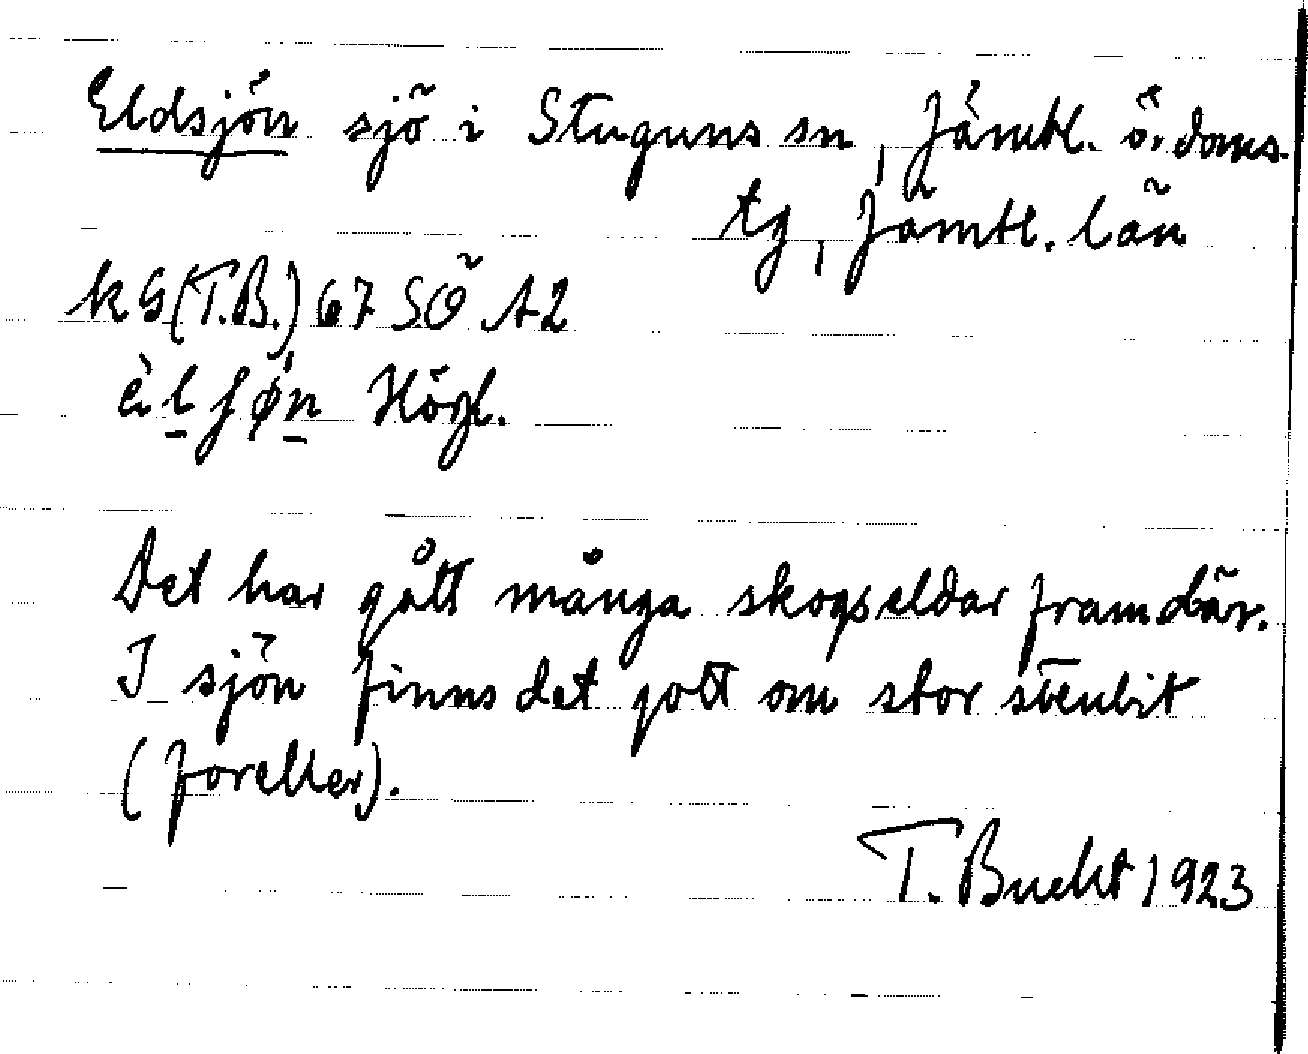 Eldsjön sjö i Stuguns sn, Jämtl. ö. doms.
tg, Jämtl. län
kG(T.B.) 67 SÖ A2
Det har gått många skogseldar fram där.
I sjön finns det gott om stor stenbit
(foreller).
T. Bucht 1923